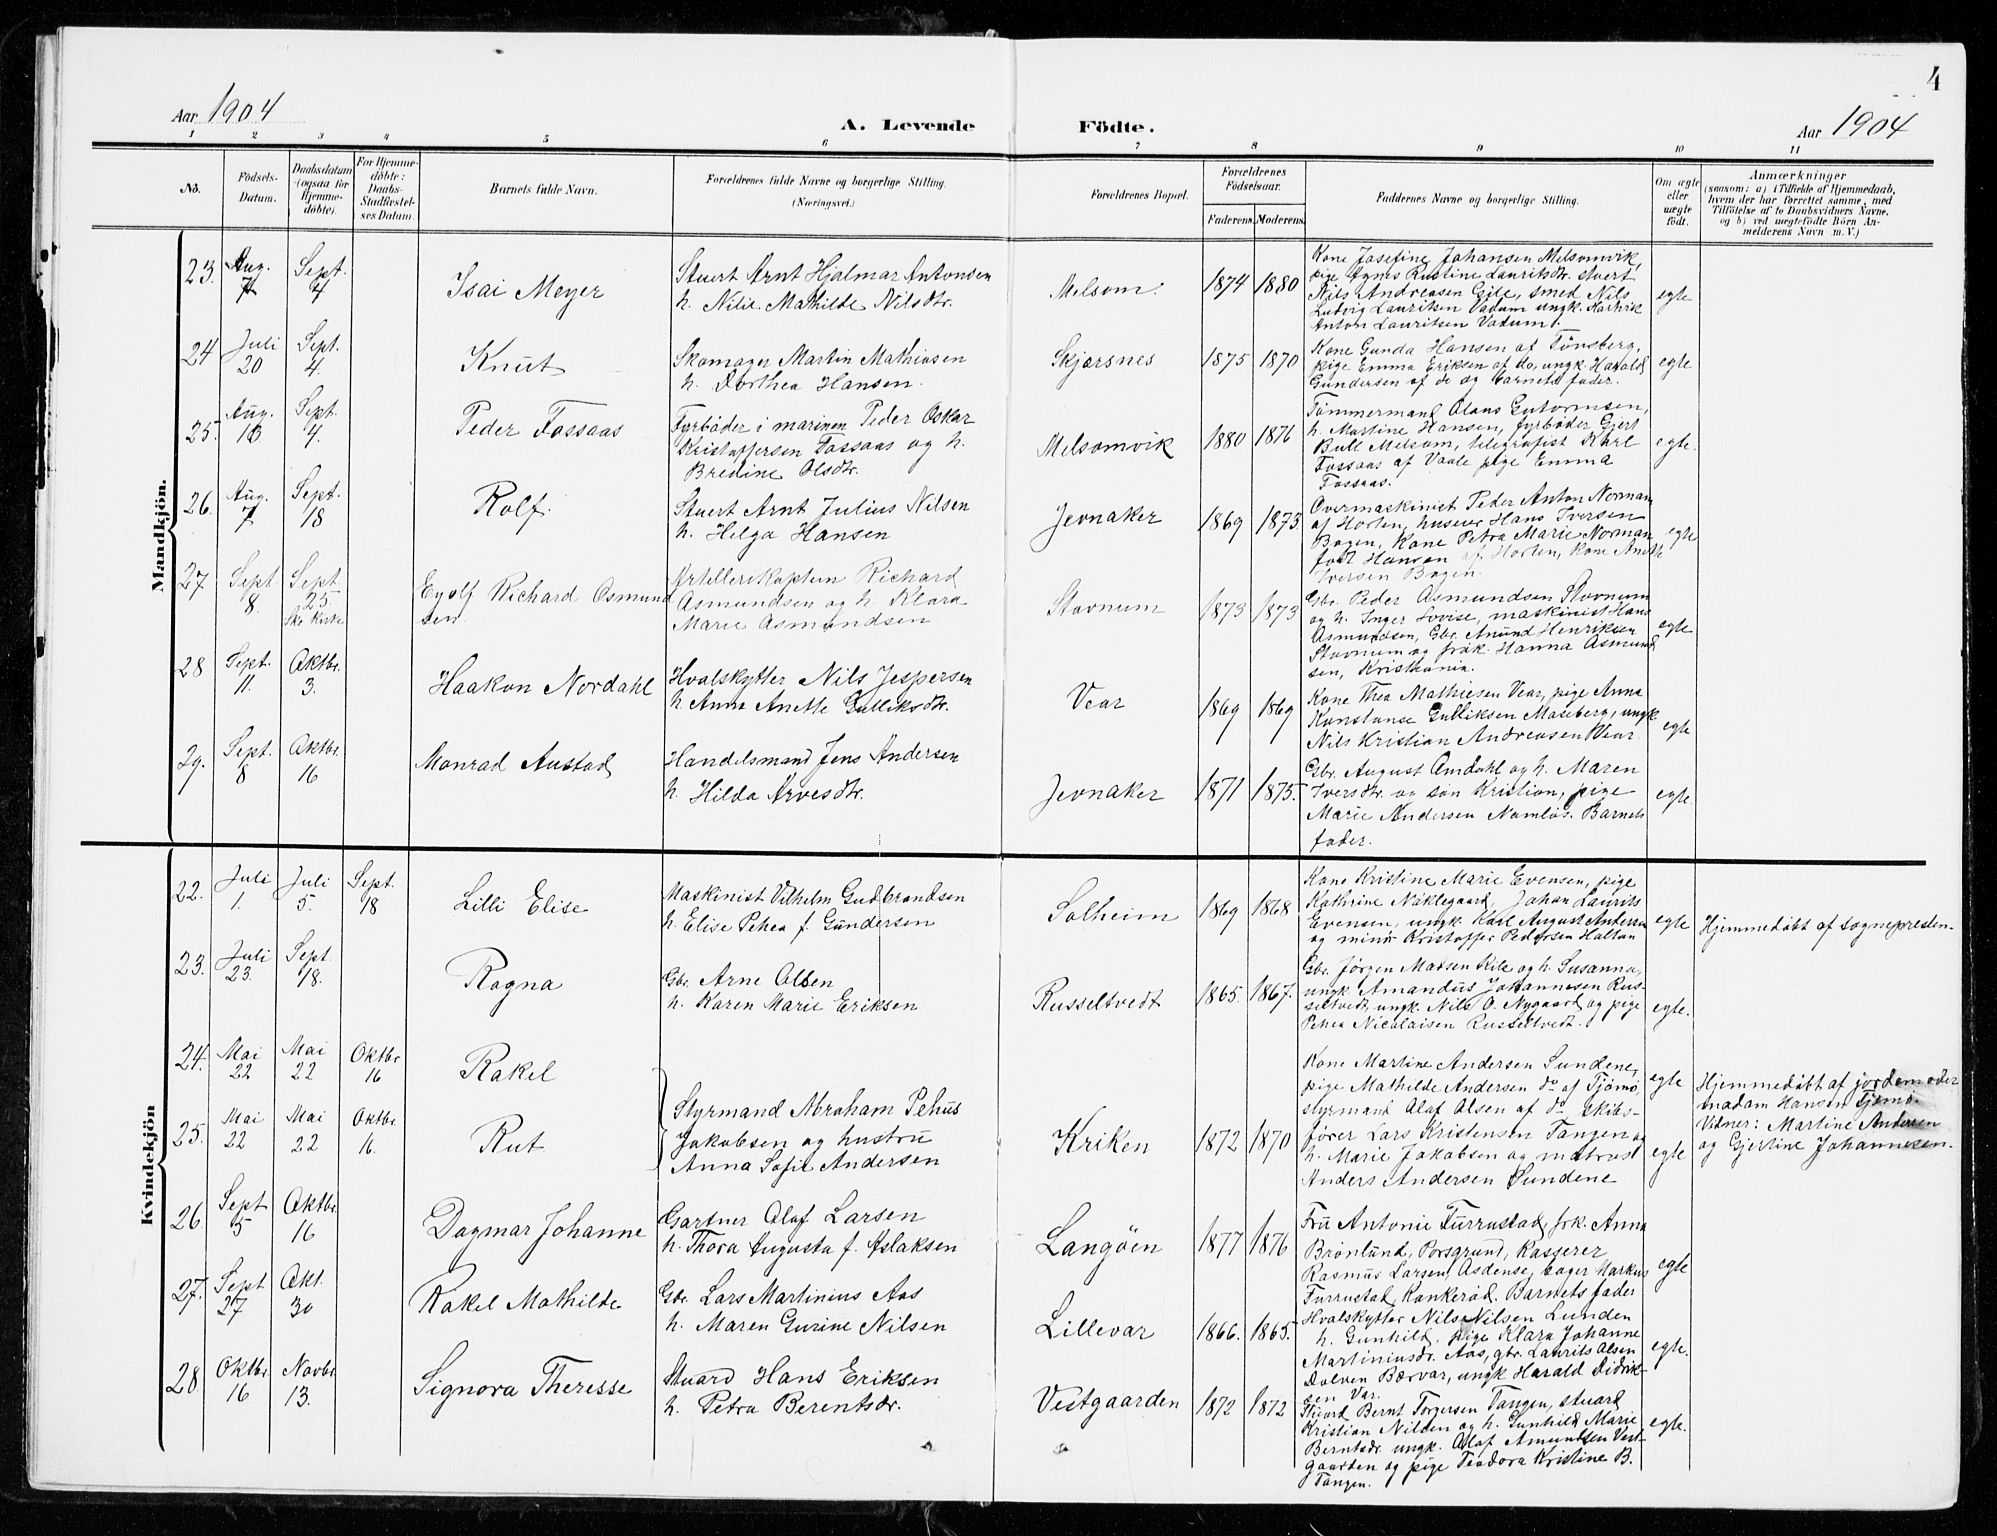 4
Aar 1904
A. Levende Födte.
Aar 1904
1 2 3 4 5 6 7 8 9 10 11
No.
Födsels-
Datum.
Daabsdatum
(ogsaa for
Hjemme-
döbte).
For Hjemme-
döbte:
Daabs-
Stadfæstel-
ses Datum.
Barnets fulde Navn.
Forældrenes fulde Navne og borgerlige Stilling.
(Næringsvei.)
Forældrenes Bopæl.
Forældrenes
Födselsaar.
Faderens. Moderens.
Faddernes Navne og borgerlige Stilling.
Om ægte
eller
uægte
født.
Anmærkninger
(saasom: a) i Tilfælde af Hjemmedaab,
hvem der har forrettet samme, med
Tilföielse af to Daabsvidners Navne.
og b) ved uægtefödte Börn An-
melderens Navn m. V.)
Mandkjön.
23. Aug. 7 Sept. 4
Isai Meyer
Stuert Arnt Hjalmar Antonsen
h. Nilie Mathilde Nilsdtr.
Melsom.
1874 1880
Kone Josefine Johansen Melsomvik,
pige Agnes Kustine Lauritsdtr. stuert
Nils Andreasen Gile, smed Nils
Ludvig Lauritsen Vadum ungk.
Anton Lauritsen Vadum.
egte
24 Juli 20 Sept. 4.
Knut
Skomager Martin Mathiasen
h. Dorthea Hansen.
Skjærsnes
1875 1870
Kone Gunda Hansen af Tönsberg,
pige Emma Eriksen af do, ungk. Harald
Gundersen af do og barnets fader.
egte
25. Aug. 16 Sept. 4.
Peder Fossaas
Fyrbøder i marinen Peder Oskar
Kristoffersen Fossaas og h.
Bredine Olsdtr.
Melsomvik
1880 1876
Tömmermand Olaus Gutormsen,
h. Martine Hansen, fyrbøder Gjert
Bull Melsom, telegrafist Karl
Fossaas af Vaale pige Emma
Fossaas.
egte.
26. Aug. 7 Sept. 18
Rolf.
Stuert Arnt Julius Nilsen
h. Helga Hansen
Jevnaker
1869 1873
Overmaskinist Peder Anton Norman
af Horten, huseier Hans Iversen
Bogen, Kone Petra Marie Norman
født Hansen af Horten, Kone Aneth
Iversen Bogen.
egte
27 Sept 8. Sept. 25
Ske Kirke
Eyolf Richard Osmund
sen.
Artillerikaptein Richard
Asmundsen og h. Klara
Marie Asmundsen
Stovnum
1873 1873
Gbr. Peder Asmundsen Stovnum
og h. Inger Lovise, maskinist Hans
Asmundsen, Gbr. Anund Henriksen
Stovnum og frøk. Hanna Asmund
sen, Kristiania.
egte
28 Sept. 11. Oktbr. 3.
Haakon Nordahl
Hvalskytter Nils Jespersen
h. Anna Anette Gulliksdtr.
Vear
1869 1869
Kone Thea Mathiesen Vear, pige Anna
Konstanse Gulliksen Maseberg, ungk
Nils Kristian Andreasen Vear.
egte
29. Sept. 8 Oktbr. 16
Monrad Austad
Handelsmand Jens Andersen
h. Hilda Arvesdtr.
Jevnaker
1871 1875.
Gbr. August Omdahl og h. Maren
Iversdtr. og søn Kristian, pige
Marie Andersen Nomløs. Barnets
fader.
egte.
Kvindekjön
22. Juli 1. Juli 5. Sept. 18
Lilli Elise
Maskinist Vilhelm Gudbrandsen
h. Elise Petrea f. Gundersen
Solheim
1869 1868
Kone Kristine Marie Evensen, pige
Kathrine Nøklegaard, Johan Laurits
Evensen, ungk. Karl August Andersen
og minor Kristoffer Pedersen Haltan
egte
Hjemmedøbt af sognepresten.
23. Juli 23. Sept. 18.
Ragna
Gbr. Arne Olsen
h. Karen Marie Eriksen
Russeltvedt
1865. 1867.
Gbr. Jørgen Matsen Kile og h. Susanna,
ungk. Amandus Johannesen Rus-
seltvedt, ungk. Nils O. Nygaard og pige
Petrea Nicolaisen Russeltvedt.
egte.
24. Mai 22 Mai 22 Oktbr 16
Rakel
25. Mai 22 Mai 22 Oktbr 16.
Rut
Styrmand Abraham Petrus
Jakobsen og hustru
Anna Sofie Andersen
Kriken
1872 1870
Kone Martine Andersen Sundene,
pige Mathilde Andersen do af Tjömö,
styrmand Olaf Olsen af do skibs-
fører Lars Kristensen Tangen og
h. Marie Jakobsen og matros
Anders Andersen Sundene
egte
egte
Hjemmedøbt af jordemoder
madam Hansen Tjømø.
Vidner: Martine Andersen
og Gjertine Johannesen.
26. Sept 5 Oktbr. 16
Dagmar Johanne
Gartner Olaf Larsen
h. Thora Augusta f. Aslaksen
Langøen
1877 1876
Fru Antonie Furrustad, frk. Anna
Brönlund, Porsgrund, Kasserer
Rasmus Larsen, Asdense, bager Markus
Furrustad, Kankerød, Barnets fader
egte
27. Sept 27 Okt. 30
Rakel Mathilde
Gbr. Lars Martinius Aas
h. Maren Gurine Nilsen
Lillevar
1866. 1865.
Hvalskytter Nils Nilsen Lunden
h. Gunhild, pige Klara Johanne
Martiniusdr. Aas, gbr. Laurits Olsen
Dalven Bærvar, ungk Harald Didrik-
sen Var.
egte.
28. Oktbr. 16 Novbr. 13.
Signora Theresse
Stuard Hans Eriksen
h. Petra Berentsdr.
Vestgaarden
1872 1872
Stuard Bernt Torgersen Tangen, stuard
Kristian Nilsen og h. Gunhild Marie
Berntsdr. ungk. Olaf Amundsen Vest-
gaarden og pige Teodora Kristine B.
Tangen.
egte.